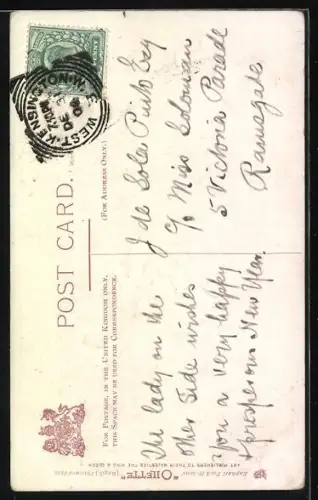 POST CARD.
FOR POSTAGE, IN THE UNITED KINGDOM ONLY,
THIS SPACE MAY BE USED FOR CORRESPONDENCE.
(FOR ADDRESS ONLY.)
WEST·KENSINGTON·W.
7.30PM
DE
The lady on the
other side wishes
you a very happy
& prosperous New Year.
J de Sola Pinto Esq
c/o Miss Solomon
5 Victoria Parade
Ramsgate
"OILETTE"
ART PUBLISHERS TO THEIR MAJESTIES THE KING & QUEEN